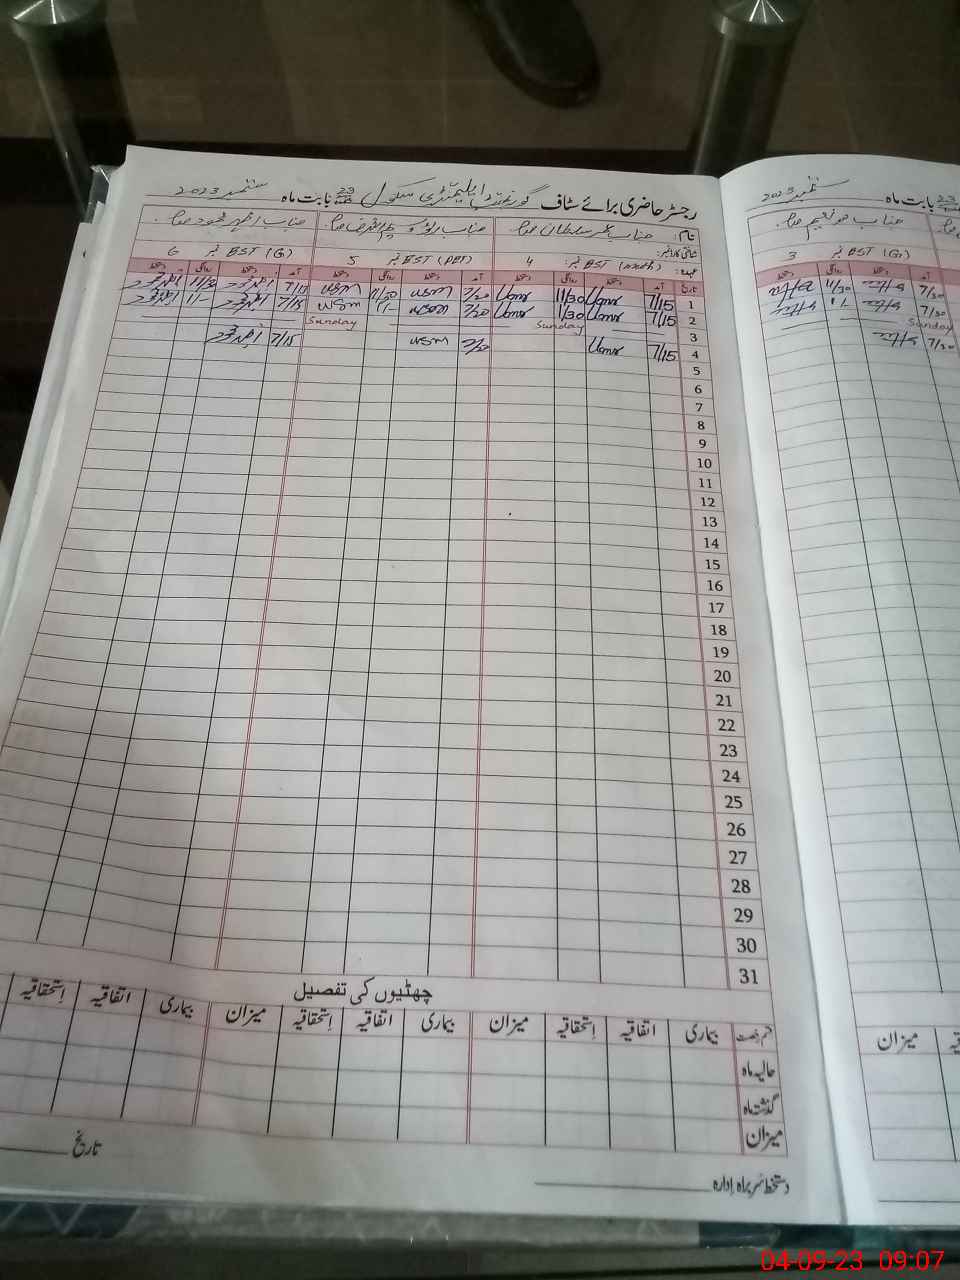 رجسٹر حاضری برائے سٹاف گورنمنٹ ایلیمنٹری سکول بابت ماہ ستمبر 2023
نام: جناب عمر سلطان صاحب جناب صاحب جناب اظہر محمود صاحب
شناختی کارڈ نمبر:
عہدہ: BST (math) نمبر 4 BST نمبر 5 BST (G) نمبر 6
تاریخ آمد دستخط روانگی دستخط آمد دستخط روانگی دستخط آمد دستخط روانگی دستخط
1 7/15 Umr 11/30 Umr 7/30 usm 11/30 usm 7/15 11/30
2 7/15 Umr 11/30 Umr 7/30 usm 11/- usm 7/15 11/-
3 Sunday Sunday
4 7/15 Umr 7/30 usm 7/15
5
6
7
8
9
10
11
12
13
14
15
16
17
18
19
20
21
22
23
24
25
26
27
28
29
30
31
چھٹیوں کی تفصیل
قسم رخصت بیماری اتفاقیہ استحقاقیہ میزان بیماری اتفاقیہ استحقاقیہ میزان بیماری اتفاقیہ استحقاقیہ
حالیہ ماہ
گذشتہ ماہ
میزان
دستخط سربراہ ادارہ تاریخ
بابت ماہ ستمبر 2023
جناب محمد نعیم صاحب
BST (G) نمبر 3
آمد دستخط روانگی دستخط
7/30 11/30
7/30 11/-
Sunday
7/30
میزان
04-09-23 09:07